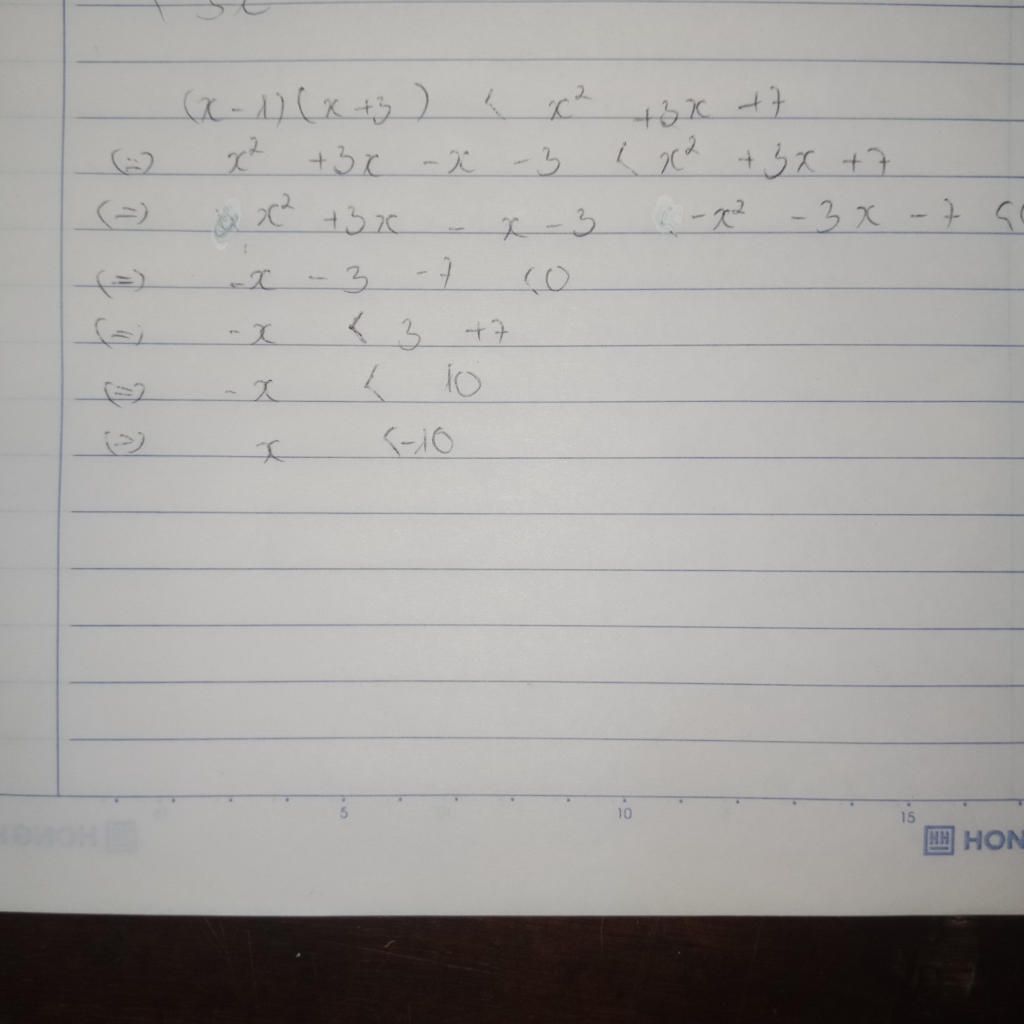 (x - 1)(x + 3) < x² + 3x + 7
(=) x² + 3x - x - 3 < x² + 3x + 7
(=) x² + 3x - x - 3 - x² - 3x - 7 <
(=) -x - 3 - 7 < 0
(=) -x < 3 + 7
(=) -x < 10
(=) x < -10
5 10 15
HH HON